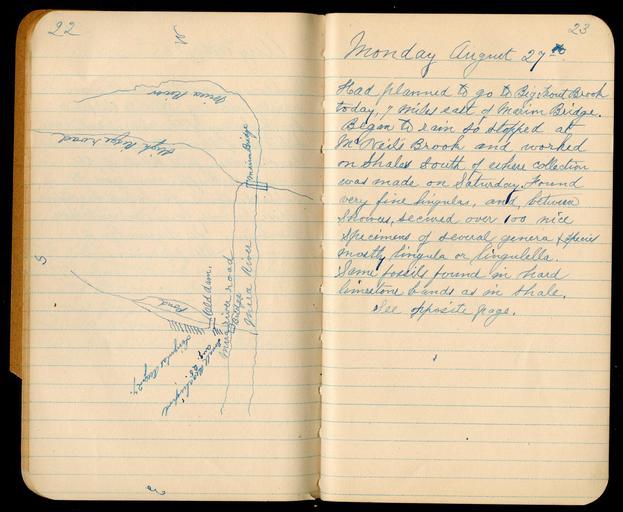 22
N
Mira River
High Ridge road
Marion Bridge
S
Pond
Old dam.
Mira river road
Bridge
Mira River
Lingulas Aug. 27.
Small
Aug. 25.
23
Monday August 27th
Had planned to go to Big Trout Brook
today, 7 miles east of Marion Bridge.
Began to rain so stopped at
McNeil's Brook and worked
on shales south of where collection
was made on Saturday. Found
very fine lingulas, and, between
showers, secured over 100 nice
specimens of several genera & species
mostly lingula or lingulella.
Same fossils found in hard
limestone bands as in shale.
See opposite page.